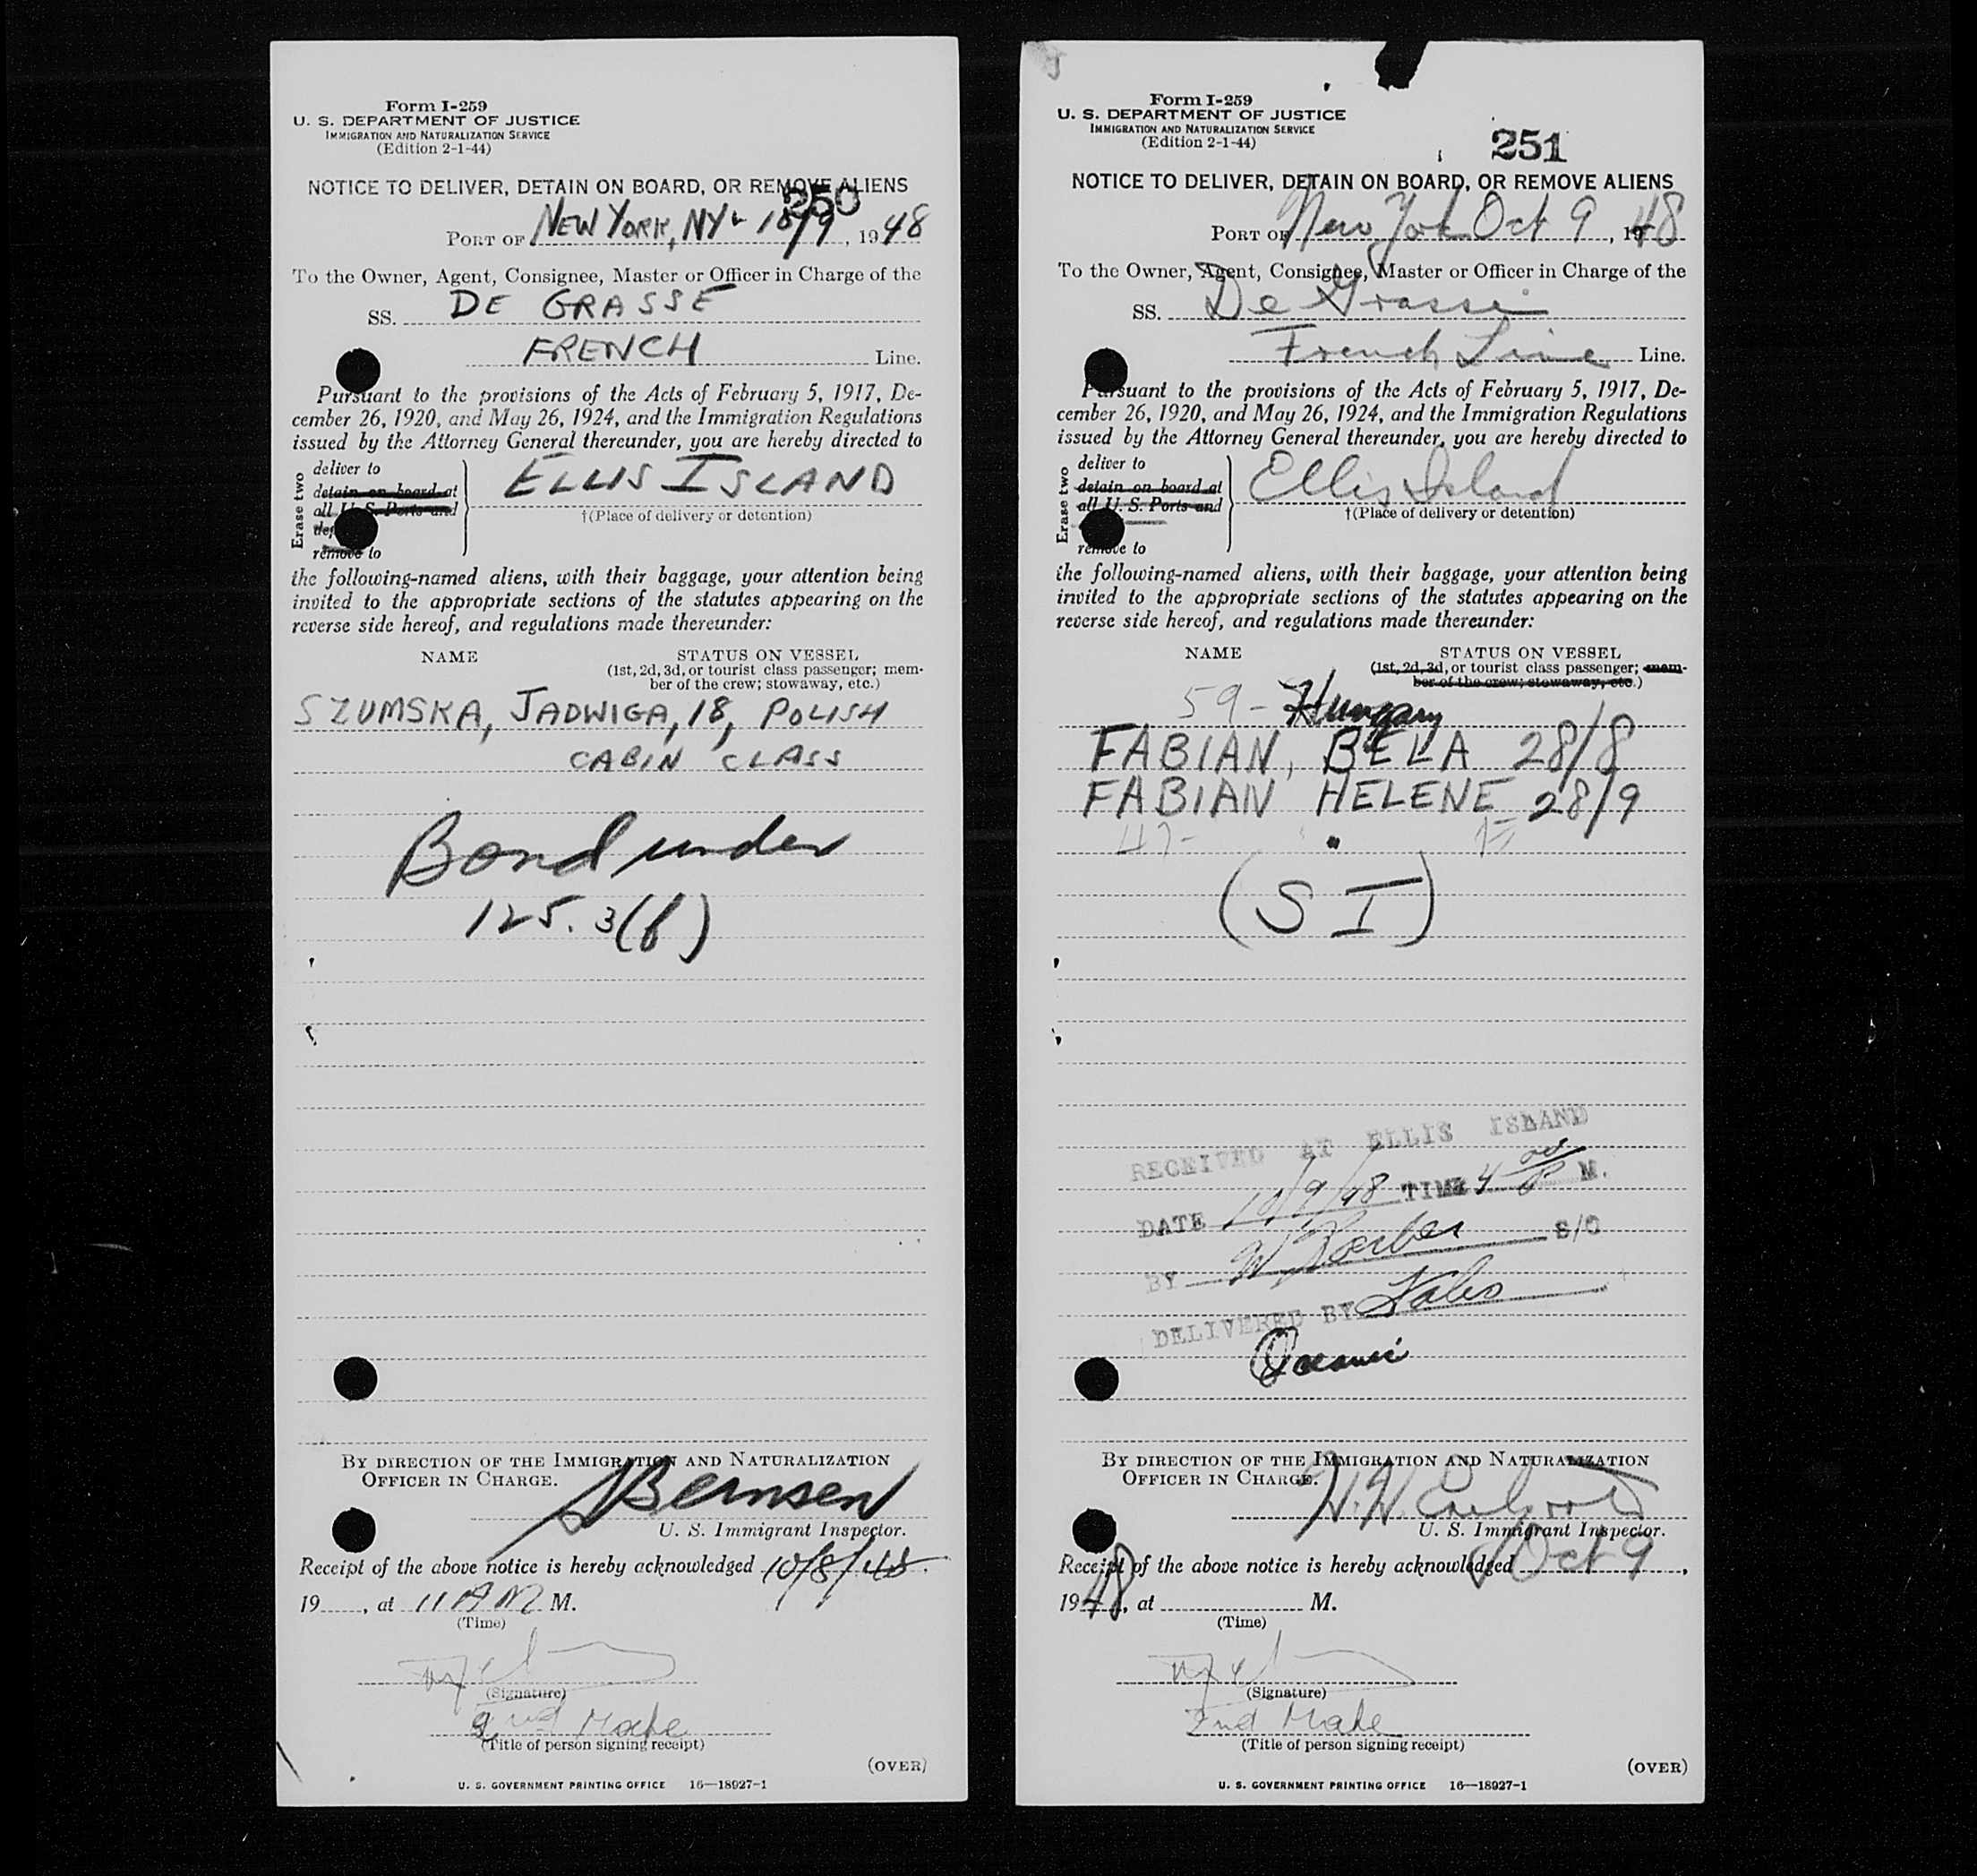 Form I-259
U. S. DEPARTMENT OF JUSTICE
IMMIGRATION AND NATURALIZATION SERVICE
(Edition 2-1-44)
NOTICE TO DELIVER, DETAIN ON BOARD, OR REMOVE ALIENS
250
PORT OF NEW YORK, NY 10/9, 1948
To the Owner, Agent, Consignee, Master or Officer in Charge of the
SS. DE GRASSE
FRENCH Line.
Pursuant to the provisions of the Acts of February 5, 1917, De-
cember 26, 1920, and May 26, 1924, and the Immigration Regulations
issued by the Attorney General thereunder, you are hereby directed to
Erase two
deliver to
detain on board at
all U. S. Ports and
remove to
ELLIS ISLAND
†(Place of delivery or detention)
the following-named aliens, with their baggage, your attention being
invited to the appropriate sections of the statutes appearing on the
reverse side hereof, and regulations made thereunder:
NAME STATUS ON VESSEL
(1st, 2d, 3d, or tourist class passenger; mem-
ber of the crew; stowaway, etc.)
SZUMSKA, JADWIGA, 18, POLISH
CABIN CLASS
Bond under
125.3(f)
BY DIRECTION OF THE IMMIGRATION AND NATURALIZATION
OFFICER IN CHARGE.
Bernsen
U. S. Immigrant Inspector.
Receipt of the above notice is hereby acknowledged 10/8/48.
19, at 11 AM M.
(Time)
(Signature)
2nd Mate
(Title of person signing receipt)
(OVER)
U. S. GOVERNMENT PRINTING OFFICE 16—18927-1
Form I-259
U. S. DEPARTMENT OF JUSTICE
IMMIGRATION AND NATURALIZATION SERVICE
(Edition 2-1-44)
251
NOTICE TO DELIVER, DETAIN ON BOARD, OR REMOVE ALIENS
PORT OF New York Oct 9, 1948
To the Owner, Agent, Consignee, Master or Officer in Charge of the
SS. De Grasse
French Line Line.
Pursuant to the provisions of the Acts of February 5, 1917, De-
cember 26, 1920, and May 26, 1924, and the Immigration Regulations
issued by the Attorney General thereunder, you are hereby directed to
Erase two
deliver to
detain on board at
all U. S. Ports and
remove to
Ellis Island
†(Place of delivery or detention)
the following-named aliens, with their baggage, your attention being
invited to the appropriate sections of the statutes appearing on the
reverse side hereof, and regulations made thereunder:
NAME STATUS ON VESSEL
(1st, 2d, 3d, or tourist class passenger; mem-
ber of the crew; stowaway, etc.)
59 - Hungary
FABIAN, BELA 28/8
FABIAN HELENE 28/9
47 - "
(SI)
RECEIVED AT ELLIS ISLAND
DATE 10/9/48 TIME 4 00 P M.
BY S/O
DELIVERED BY
BY DIRECTION OF THE IMMIGRATION AND NATURALIZATION
OFFICER IN CHARGE.
U. S. Immigrant Inspector.
Receipt of the above notice is hereby acknowledged Oct 9,
1948, at M.
(Time)
(Signature)
2nd Mate
(Title of person signing receipt)
(OVER)
U. S. GOVERNMENT PRINTING OFFICE 16—18927-1